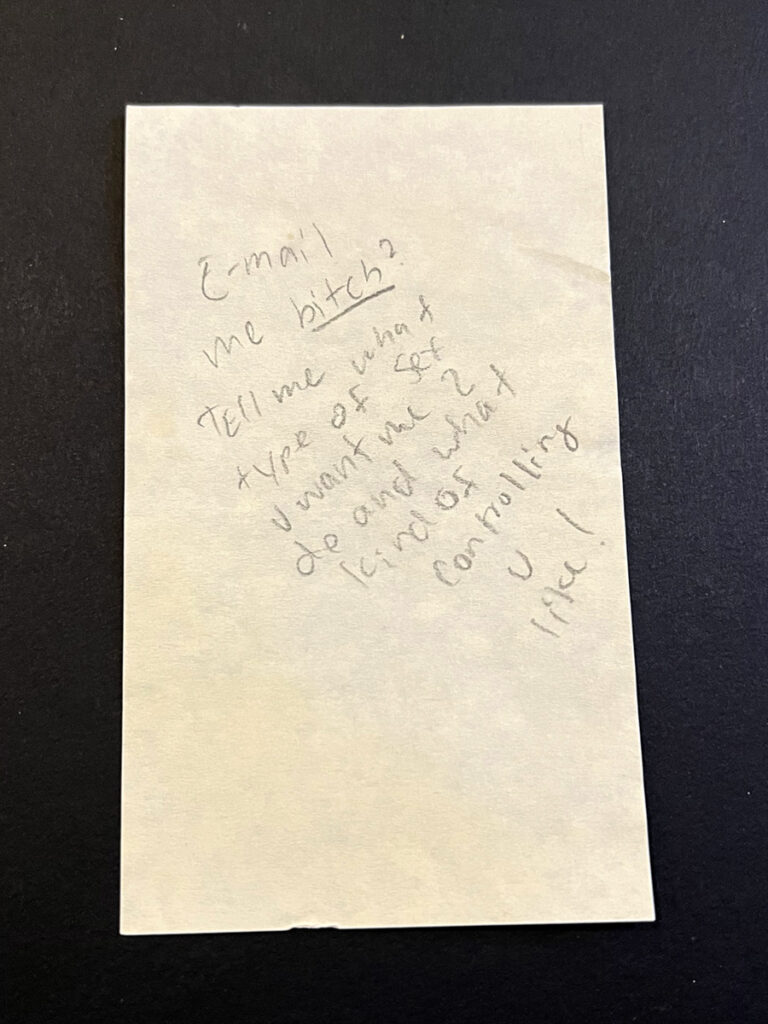 E-mail
me bitch?
Tell me what
type of sex
u want me 2
do and what
kind of
controlling
u
like!